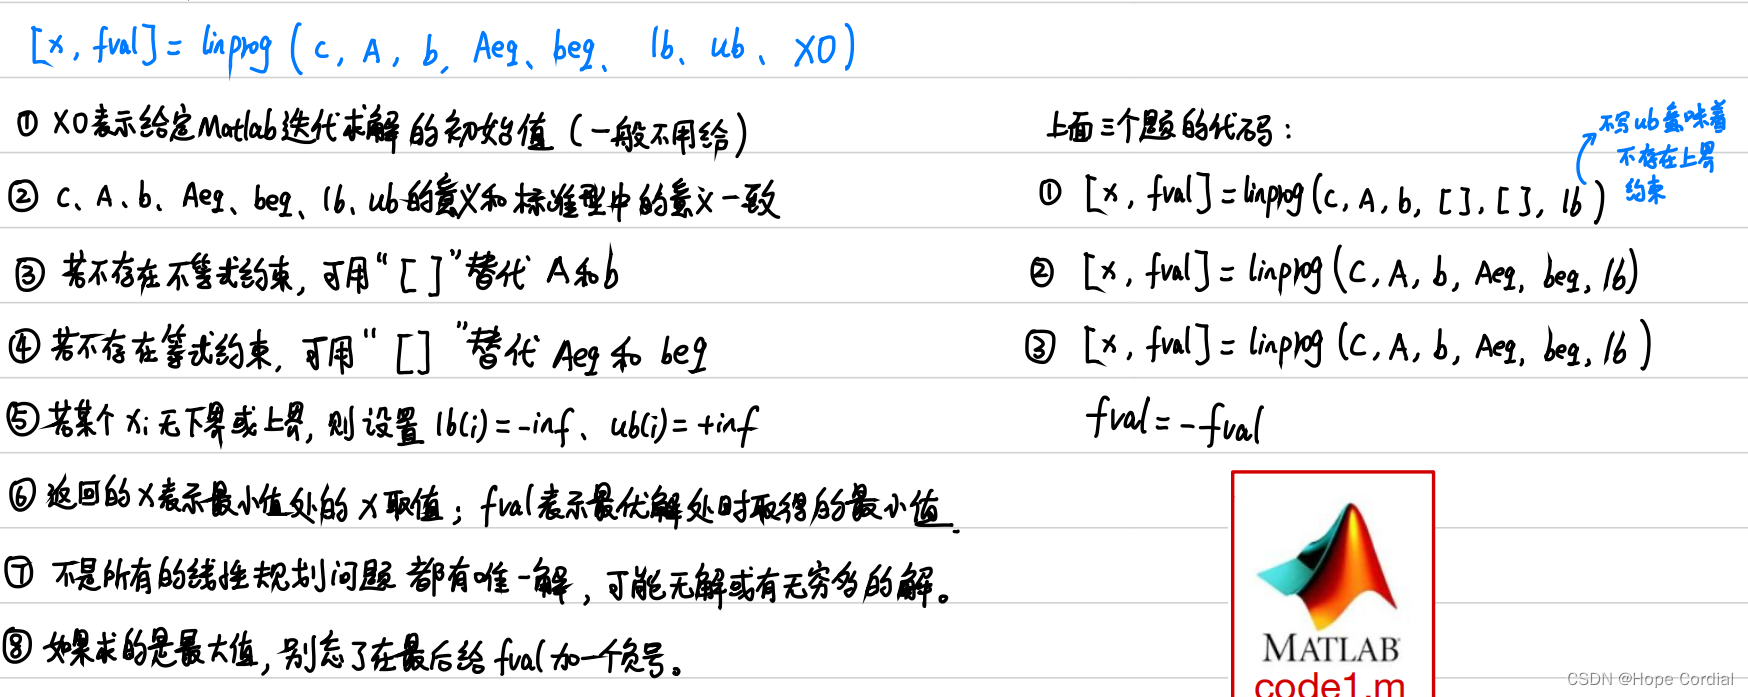 [x, fval] = linprog (c, A, b, Aeq、beq、lb、ub、X0)
① X0表示给定Matlab迭代求解的初始值（一般不用给）
② c、A、b、Aeq、beq、lb、ub的意义和标准型中的意义一致
③ 若不存在不等式约束, 可用“[ ]”替代 A和b
④ 若不存在等式约束, 可用“[ ]”替代 Aeq 和 beq
⑤ 若某个 xi 无下界或上界, 则设置 lb(i) = -inf、ub(i) = +inf
⑥ 返回的x表示最小值处的x取值；fval表示最优解处时取得的最小值.
⑦ 不是所有的线性规划问题都有唯一解，可能无解或有无穷多的解。
⑧ 如果求的是最大值, 别忘了在最后给fval加一个负号。
上面三个题的代码：
不写ub意味着
不存在上界
约束
① [x, fval] = linprog (c, A, b, [ ], [ ], lb)
② [x, fval] = linprog (c, A, b, Aeq, beq, lb)
③ [x, fval] = linprog (c, A, b, Aeq, beq, lb)
fval = -fval
MATLAB
code1.m
CSDN @Hope Cordial